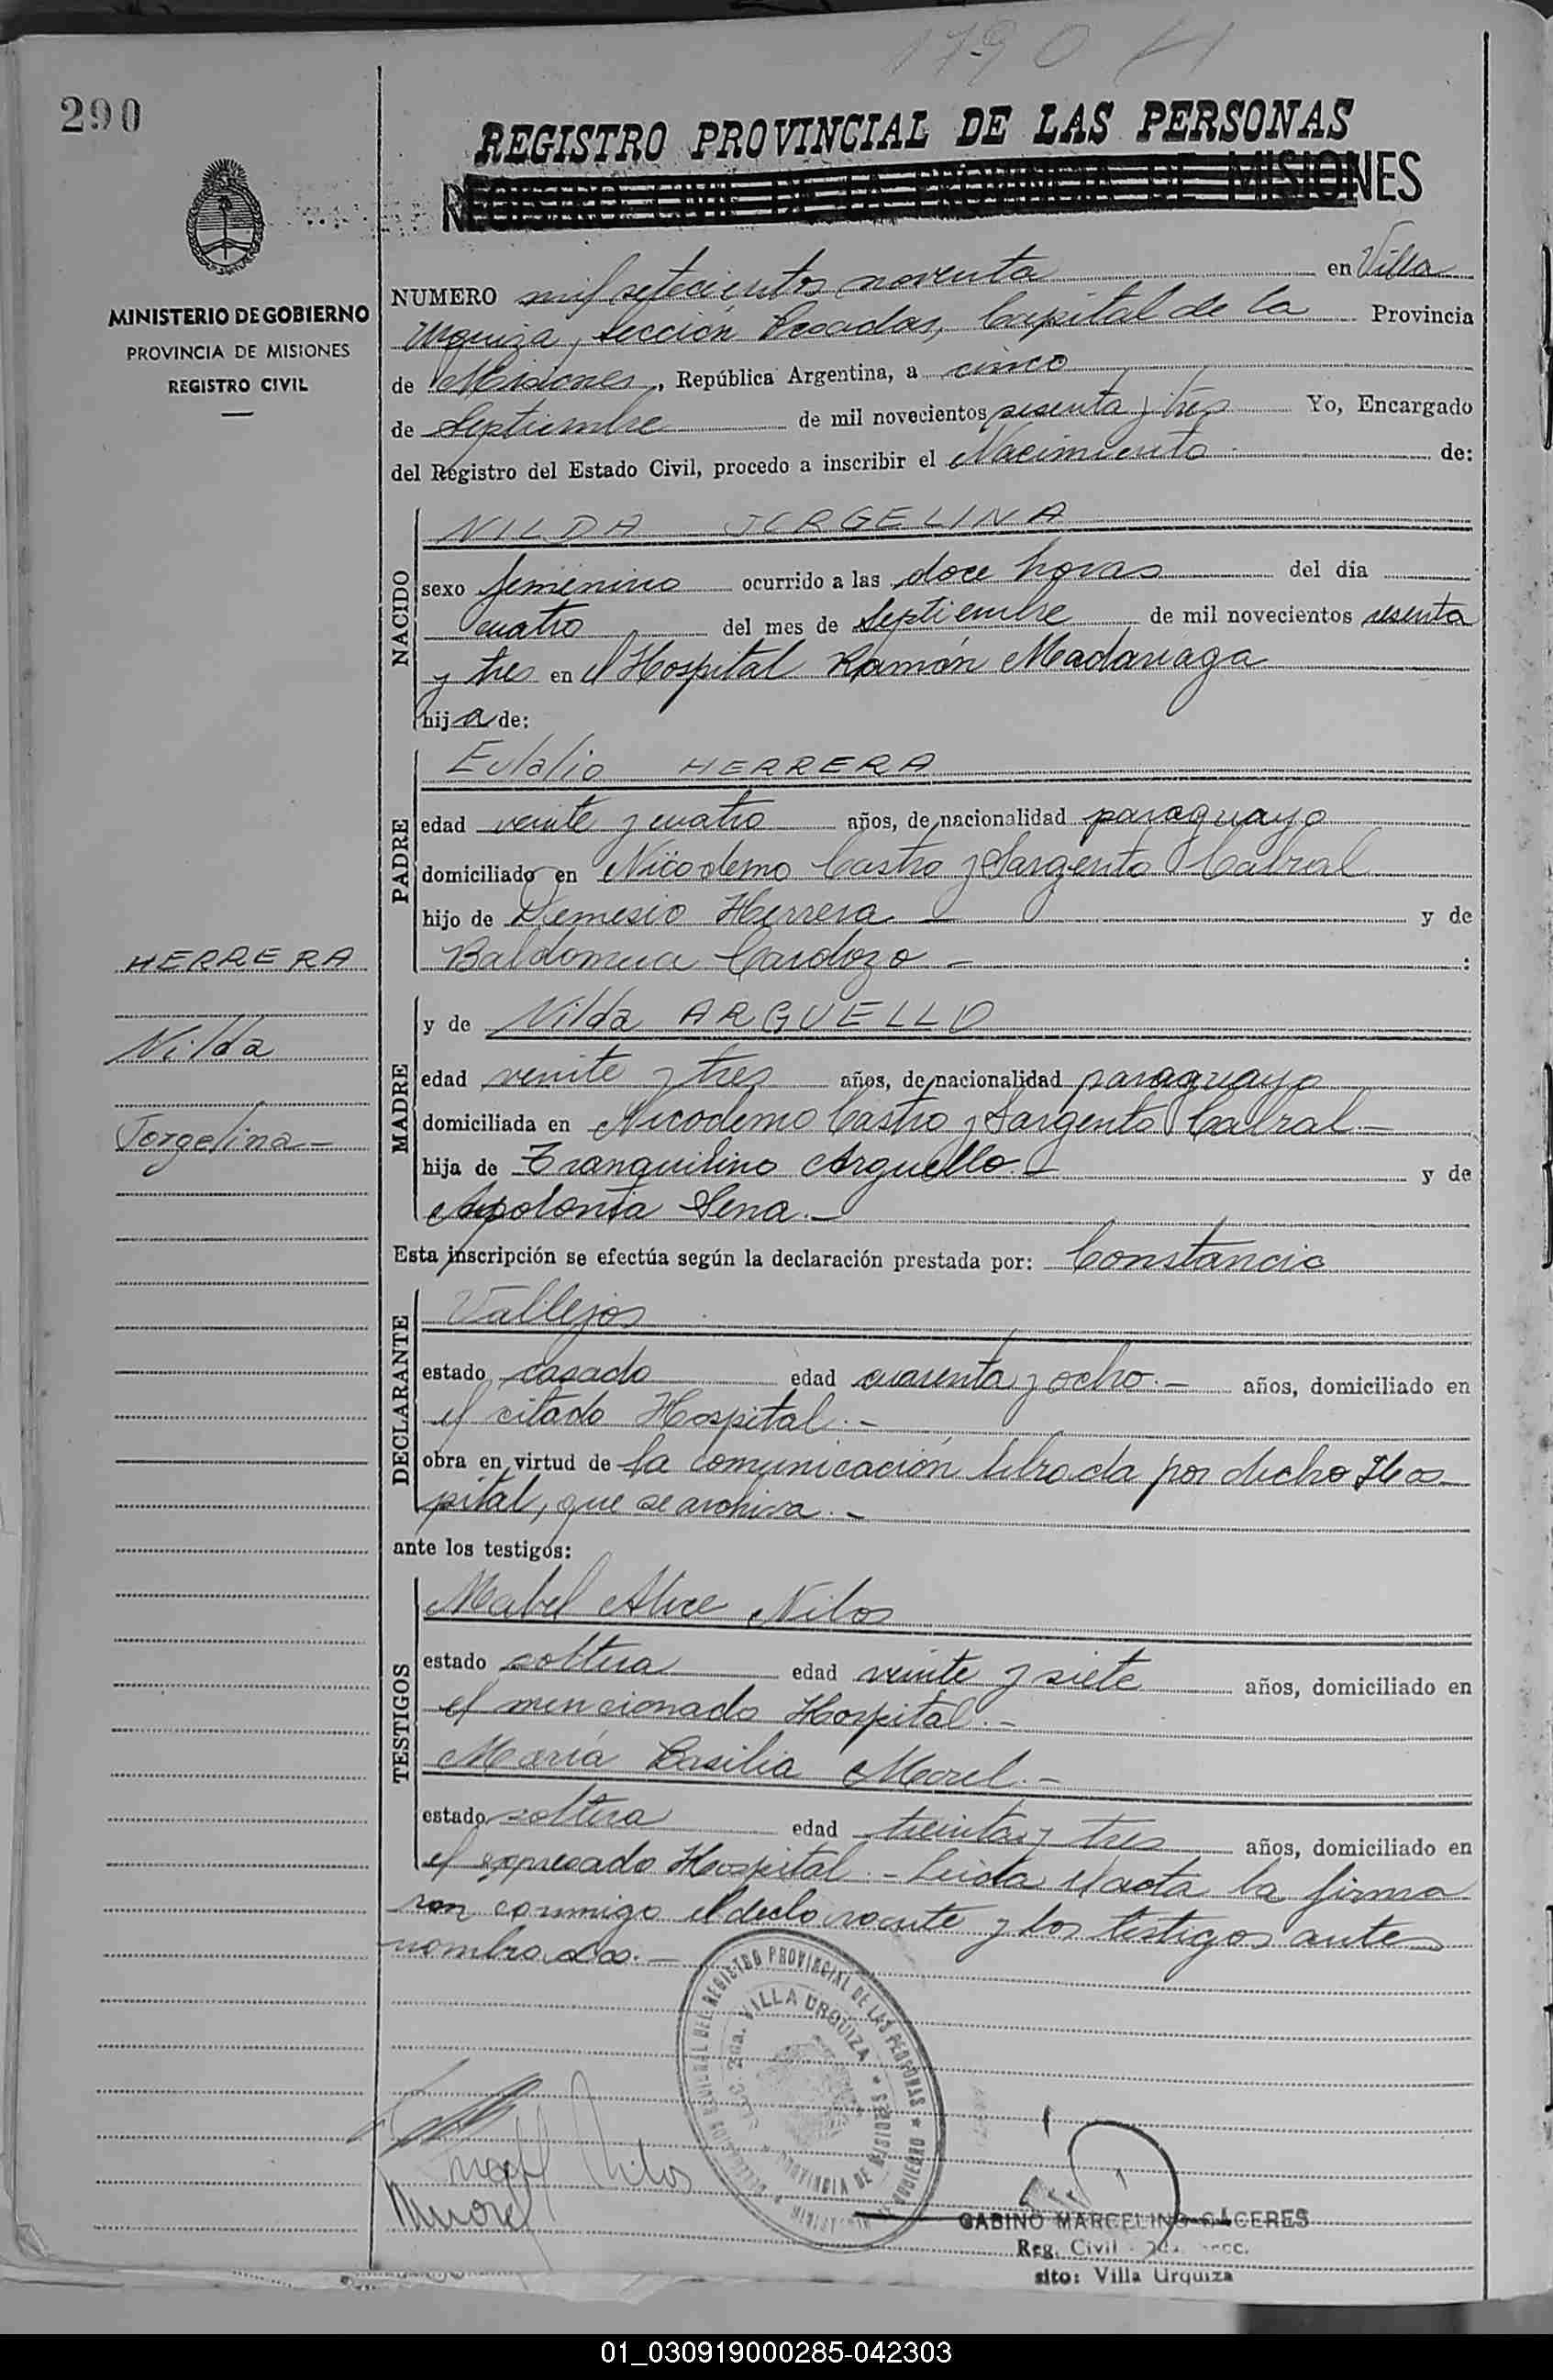 1790
290
REGISTRO PROVINCIAL DE LAS PERSONAS
REGISTRO CIVIL DE LA PROVINCIA DE MISIONES
MINISTERIO DE GOBIERNO
PROVINCIA DE MISIONES
REGISTRO CIVIL
NUMERO mil setecientos noventa en Villa
Urquiza, Sección Posadas, Capital de la Provincia
de Misiones, República Argentina, a cinco
de Septiembre de mil novecientos sesenta y tres Yo, Encargado
del Registro del Estado Civil, procedo a inscribir el Nacimiento de:
NACIDO
NILDA JORGELINA
sexo femenino ocurrido a las doce horas del día
cuatro del mes de Septiembre de mil novecientos sesenta
y tres en el Hospital Ramón Madariaga
hija de:
PADRE
Eulalio HERRERA
edad veinte y cuatro años, de nacionalidad paraguayo
domiciliado en Nicodemo Castro y Sargento Cabral
hijo de Nemesio Herrera y de
Baldomera Cardozo -
HERRERA
Nilda
Jorgelina-
MADRE
y de Nilda ARGUELLO
edad veinte y tres años, de nacionalidad paraguaya
domiciliada en Nicodemo Castro y Sargento Cabral.-
hija de Tranquilino Arguello.- y de
Apolonia Sena.-
Esta inscripción se efectúa según la declaración prestada por: Constancio
DECLARANTE
Vallejos
estado casado edad cuarenta y ocho.- años, domiciliado en
el citado Hospital.-
obra en virtud de la comunicación librada por dicho Hos-
pital, que se archiva.-
ante los testigos:
TESTIGOS
Mabel Alice Nilos
estado soltera edad veinte y siete años, domiciliado en
el mencionado Hospital.-
María Basilia Morel.-
estado soltera edad treinta y tres años, domiciliado en
el expresado Hospital.- Leida el acta la firma
ron conmigo el declarante y los testigos antes
nombrados.-
REGISTRO PROVINCIAL DE LAS PERSONAS
VILLA URQUIZA
PROVINCIA DE MISIONES
Nilos
Morel
GABINO MARCELINO CACERES
Reg. Civil
sito: Villa Urquiza
01_030919000285-042303